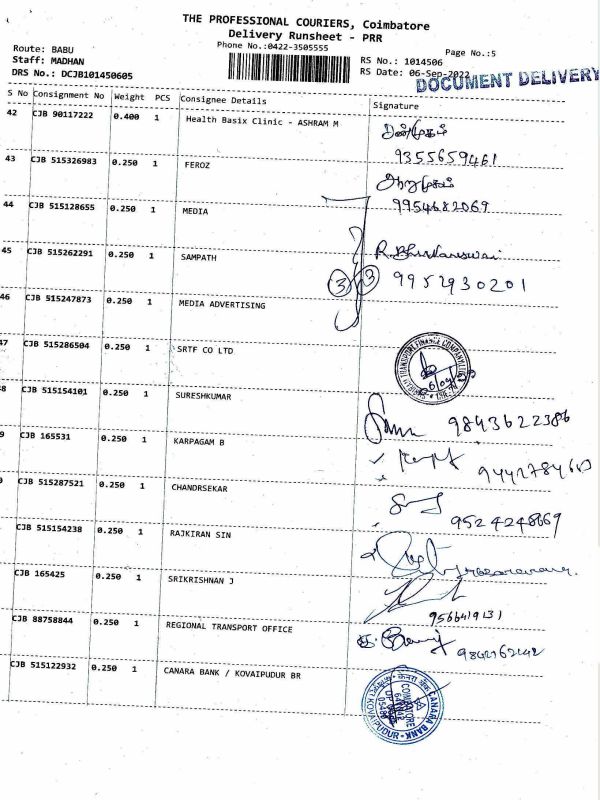 THE PROFESSIONAL COURIERS, Coimbatore
Delivery Runsheet - PRR
Phone No.:0422-3505555
Page No.:5
Route: BABU
Staff: MADHAN
DRS No.: DCJB101450605
RS No.: 1014506
RS Date: 06-Sep-2022
DOCUMENT DELIVERY
S No Consignment No Weight PCS Consignee Details Signature
42 CJB 90117222 0.400 1 Health Basix Clinic - ASHRAM M
சண்முகம்
9355659461
43 CJB 515326983 0.250 1 FEROZ
ஆறுமுகம்
9954682069
44 CJB 515128655 0.250 1 MEDIA
45 CJB 515262291 0.250 1 SAMPATH
9952930201
3 3
46 CJB 515247873 0.250 1 MEDIA ADVERTISING
47 CJB 515286504 0.250 1 SRTF CO LTD
8 CJB 515154101 0.250 1 SURESHKUMAR
9843622386
9 CJB 165531 0.250 1 KARPAGAM B
CJB 515287521 0.250 1 CHANDRSEKAR
9524248669
CJB 515154238 0.250 1 RAJKIRAN SIN
CJB 165425 0.250 1 SRIKRISHNAN J
9566419131
CJB 88758844 0.250 1 REGIONAL TRANSPORT OFFICE
9842162142
CJB 515122932 0.250 1 CANARA BANK / KOVAIPUDUR BR
CANARA BANK
KOVAIPUDUR
COIMBATORE